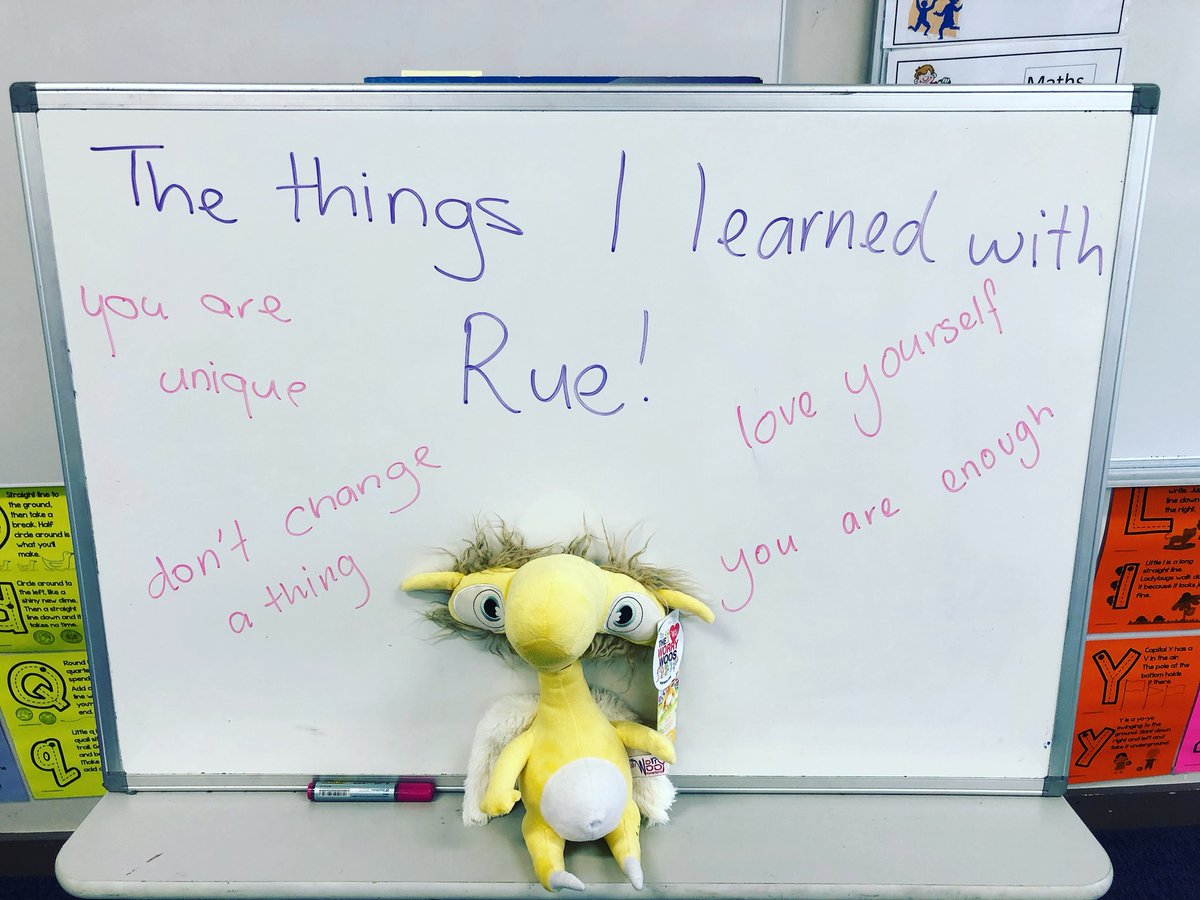 Maths
The things I learned with
Rue!
you are
unique
love yourself
don't change
a thing
you are enough
Straight line to
the ground,
then take a
break. Half
circle around is
what you'll
make.
Circle around to
the left, like a
shiny new dime.
Then a straight
line down and it
takes no time.
Q
q
THE
WORRY
WOOS
L
line down
the right.
Little l is a long
straight line.
Ladybugs walk
it because it looks
fine.
Y
Capital Y has a
V in the air.
The pole at the
bottom holds
it there.
y
Y is a yo-yo
swinging to the
ground. Slant down
right and left and
take it underground.